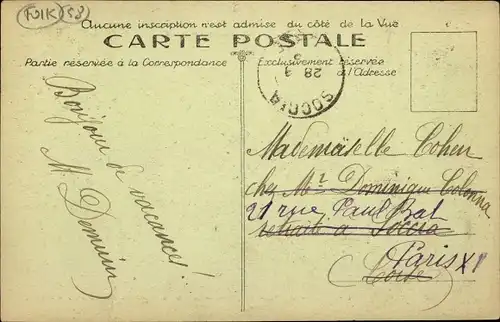 FOLK 58
Aucune inscription n'est admise du côté de la Vue
CARTE POSTALE
Partie réservée à la Correspondance
Exclusivement réservée
à l'Adresse
28
SOCCIA
Bonjour de vacances!
M. Dominici
Mademoiselle Cohen
chez Mr. Dominique Colonna
21 rue Paul Bert
retraité à Soccia
Paris XI
Corse